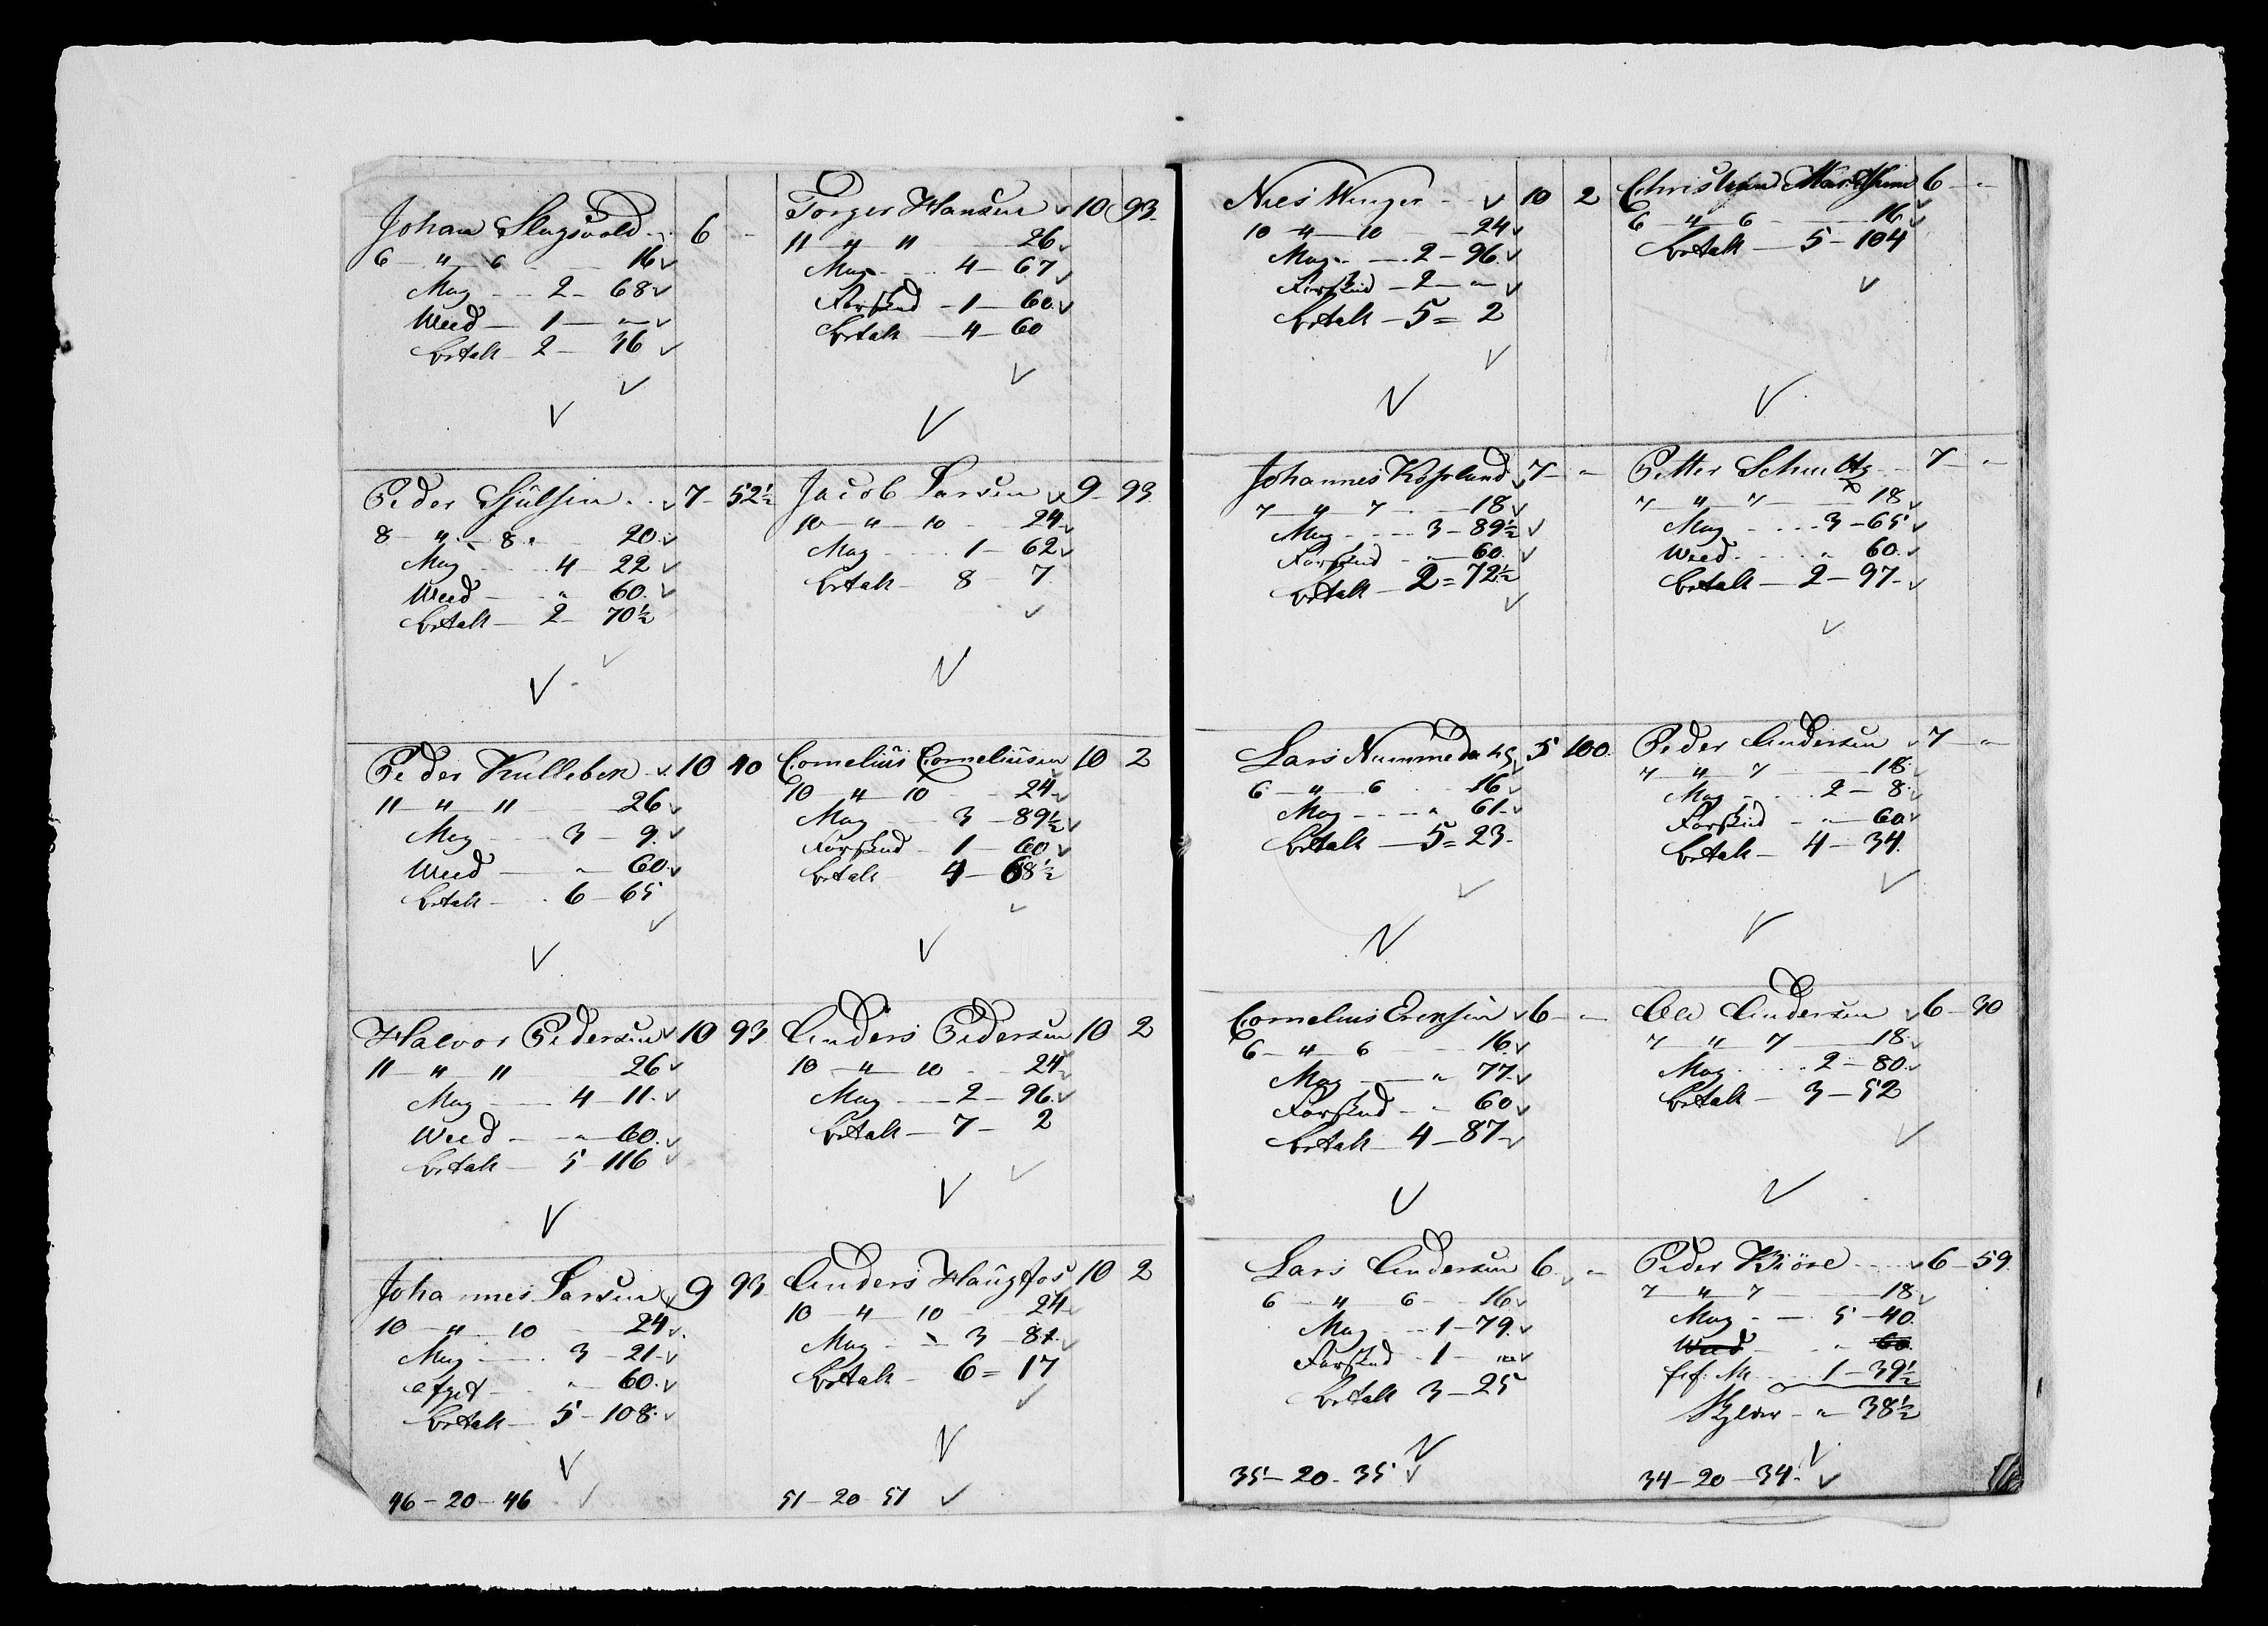 Johan Slugsvold 6 -
6 - " - 6 - 16
Mag - 2 - 68
Weed - 1 - "
betalt - 2 - 36

Peder Hjulsin 7 - 52½
8 - " - 8 - 20
Mag - 4 - 22
Weed - " - 60
betalt - 2 - 70½

Peder Kullebek 10 40
11 - " - 11 - 26
Mag - 3 - 9
Weed - " - 60
betalt - 6 - 65

Halvor Pedersen 10 93
11 - " - 11 - 26
Mag - 4 - 11
Weed - " - 60
betalt - 5 - 116

Johannes Larsen 9 93
10 - " - 10 - 24
Mag - 3 - 21
afget - " - 60
betalt - 5 - 108
46 - 20 - 46

Torger Hansen 10 93
11 - " - 11 - 26
Mag - 4 - 67
Forskud - 1 - 60
betalt - 4 - 60

Jacob Larsen 9 - 93
10 - " - 10 - 24
Mag - 1 - 62
betalt - 8 - 7

Cornelius Corneliusen 10 2
10 - " - 10 - 24
Mag - 3 - 89½
Forskud - 1 - 60
betalt 4 - 68½

Anders Pedersen 10 2
10 - " - 10 - 24
Mag - 2 - 96
betalt - 7 - 2

Anders Haugfos 10 2
10 - " - 10 - 24
Mag - 3 - 81
betalt - 6 = 17
51 - 20 - 51

Niels Winger 10 2
10 - " - 10 - 24
Mag - 2 - 96
Forskud - 2 - "
betalt - 5 = 2

Johannes Kopland 7 - "
7 - " - 7 - 18
Mag - 3 - 89½
Forskud - " - 60
betalt - 2 = 72½

Lars Nummedals 5 100
6 - " - 6 - 16
Mag - " 61
betalt - 5 = 23

Cornelius Eriksen 6 - "
6 - " - 6 - 16
Mag - " 77
Forskud - " 60
betalt - 4 - 87

Lars Andersen 6 "
6 - " - 6 - 16
Mag - 1 - 79
Forskud - 1 - "
betalt 3 - 25
35 - 20 - 35

Christian 6 - "
6 - " - 6 - 16
betalt - 5 - 104

Petter Schultz 7 - "
7 - " - 7 - 18
Mag - 3 - 65
Weed - " 60
betalt - 2 - 97

Peder Andersen 7 - "
7 - " - 7 - 18
Mag - 2 - 8
Forskud - " - 60
betalt - 4 - 34

Ole Andersen 6 - 30
7 - " - 7 - 18
Mag - 2 - 80
betalt - 3 - 52

Peder Kiöse 6 - 59
7 - " - 7 - 18
Mag - 5 - 40
Weed - " 60
1 - 39½
Skylder - " 38½
34 - 20 - 34